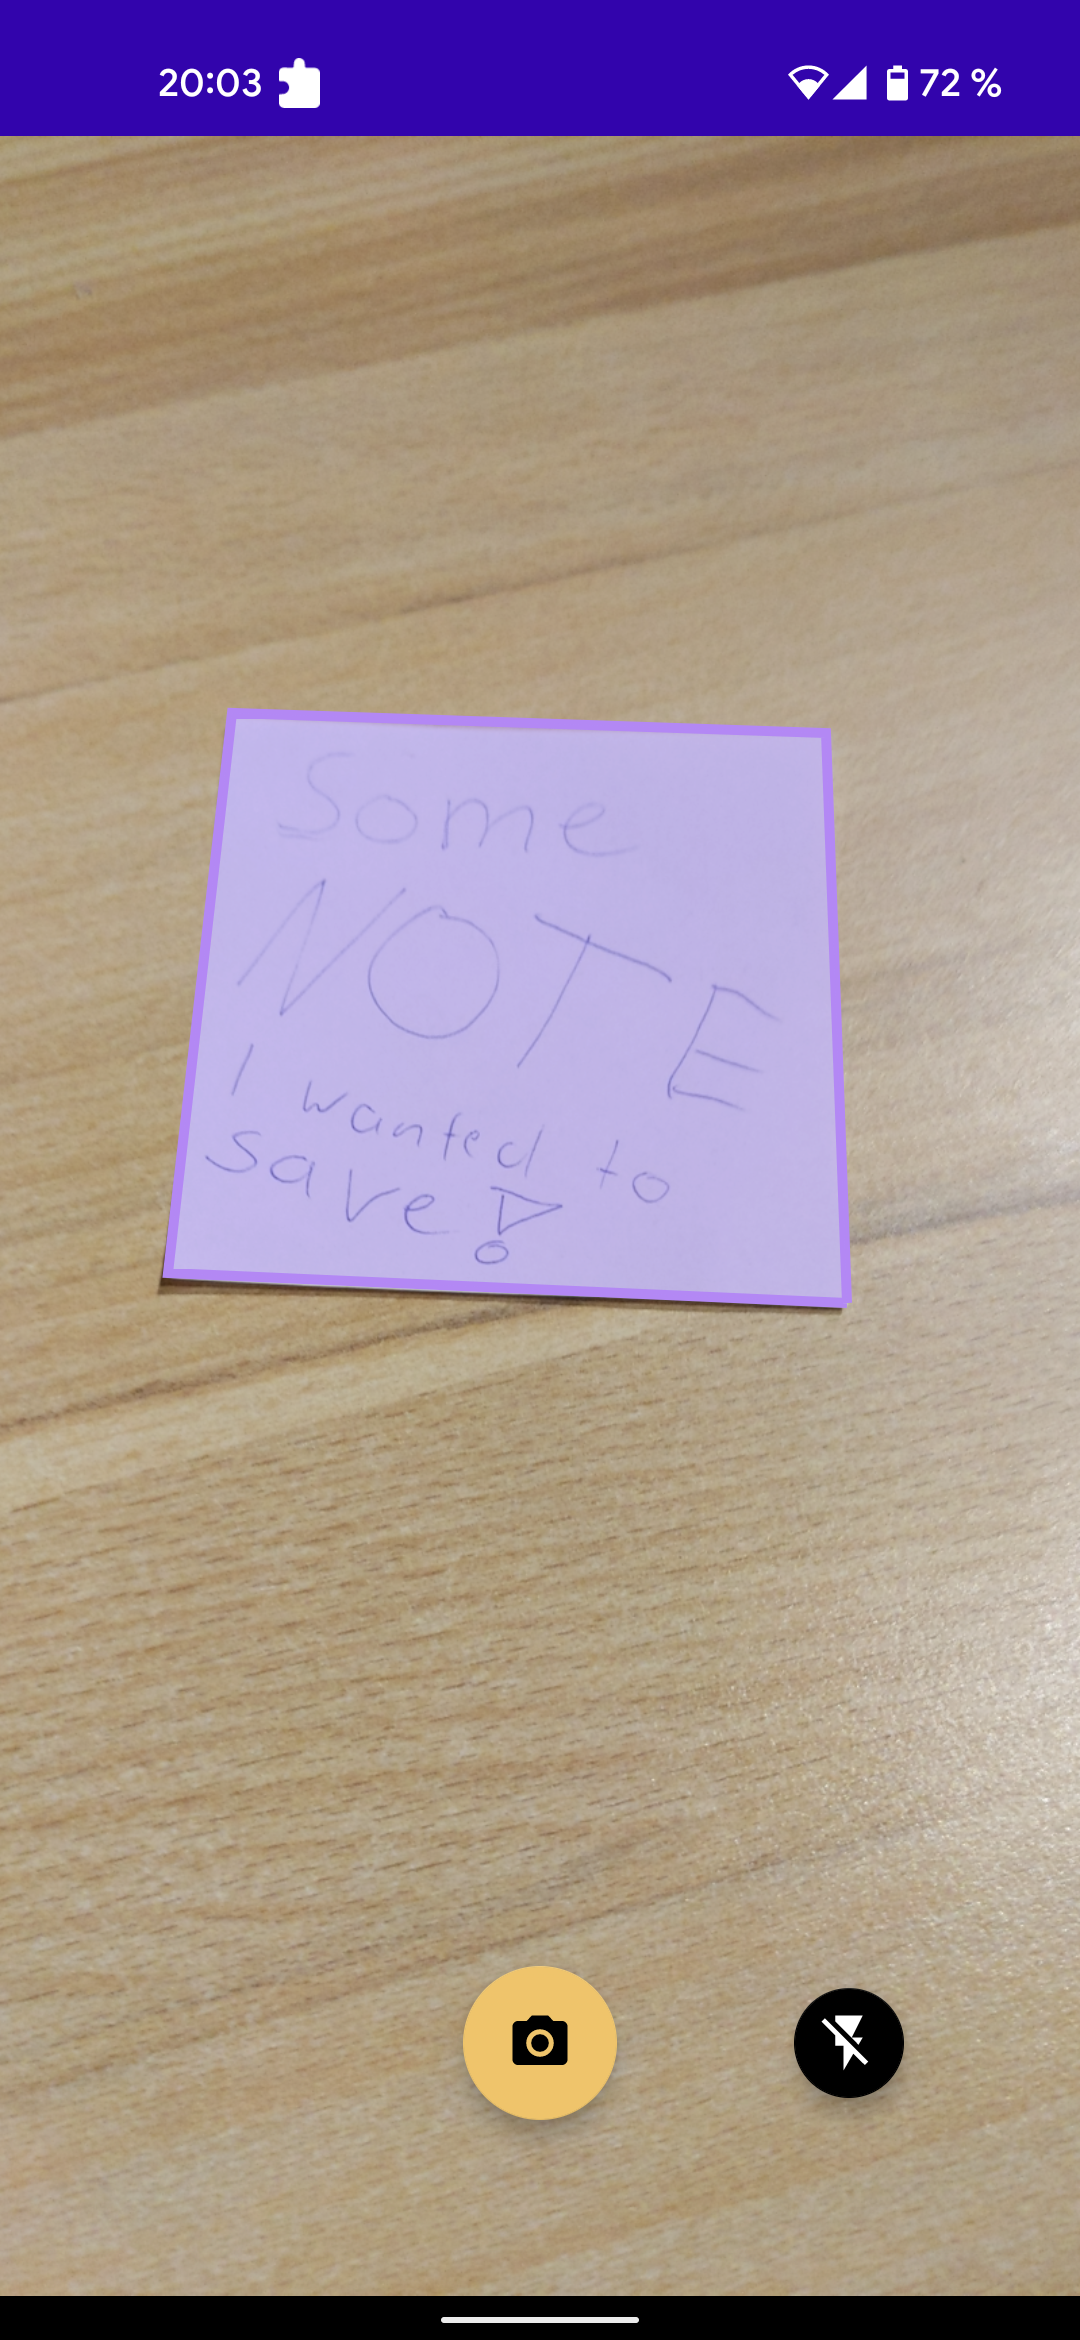 20:03 72 %
Some
NOTE
I wanted to
save!